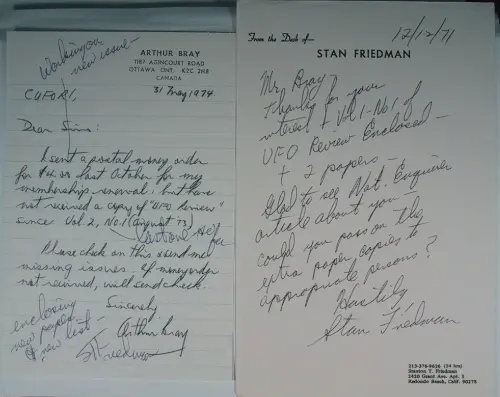 Working on
new issue -
ARTHUR BRAY
1187 AGINCOURT ROAD
OTTAWA ONT. K2C 2H8
CANADA
31 May 1974
CUFORI,
Dear Sirs:
I sent a postal money order
for $4.00 last October for my
membership renewal but have
not received a copy of "UFO Review"
since Vol 2, No. 1 (August 73)
last one
Please check on this & send me
missing issues. If money order
not received, will send check.
Sincerely
Arthur Bray
enclosing
new papers
& new list -
S Friedman
From the Desk of—
12/12/71
STAN FRIEDMAN
Mr. Bray -
Thanks for your
interest + Vol 1 - No 1 of
UFO Review Enclosed -
+ 2 papers -
Glad to see Nat. Enquirer
article about you -
could you pass on the
extra paper copies to
appropriate persons?
Hastily
Stan Friedman
213-376-9826 (24 hrs)
Stanton T. Friedman
2420 Grant Ave. Apt. 3
Redondo Beach, Calif. 90278